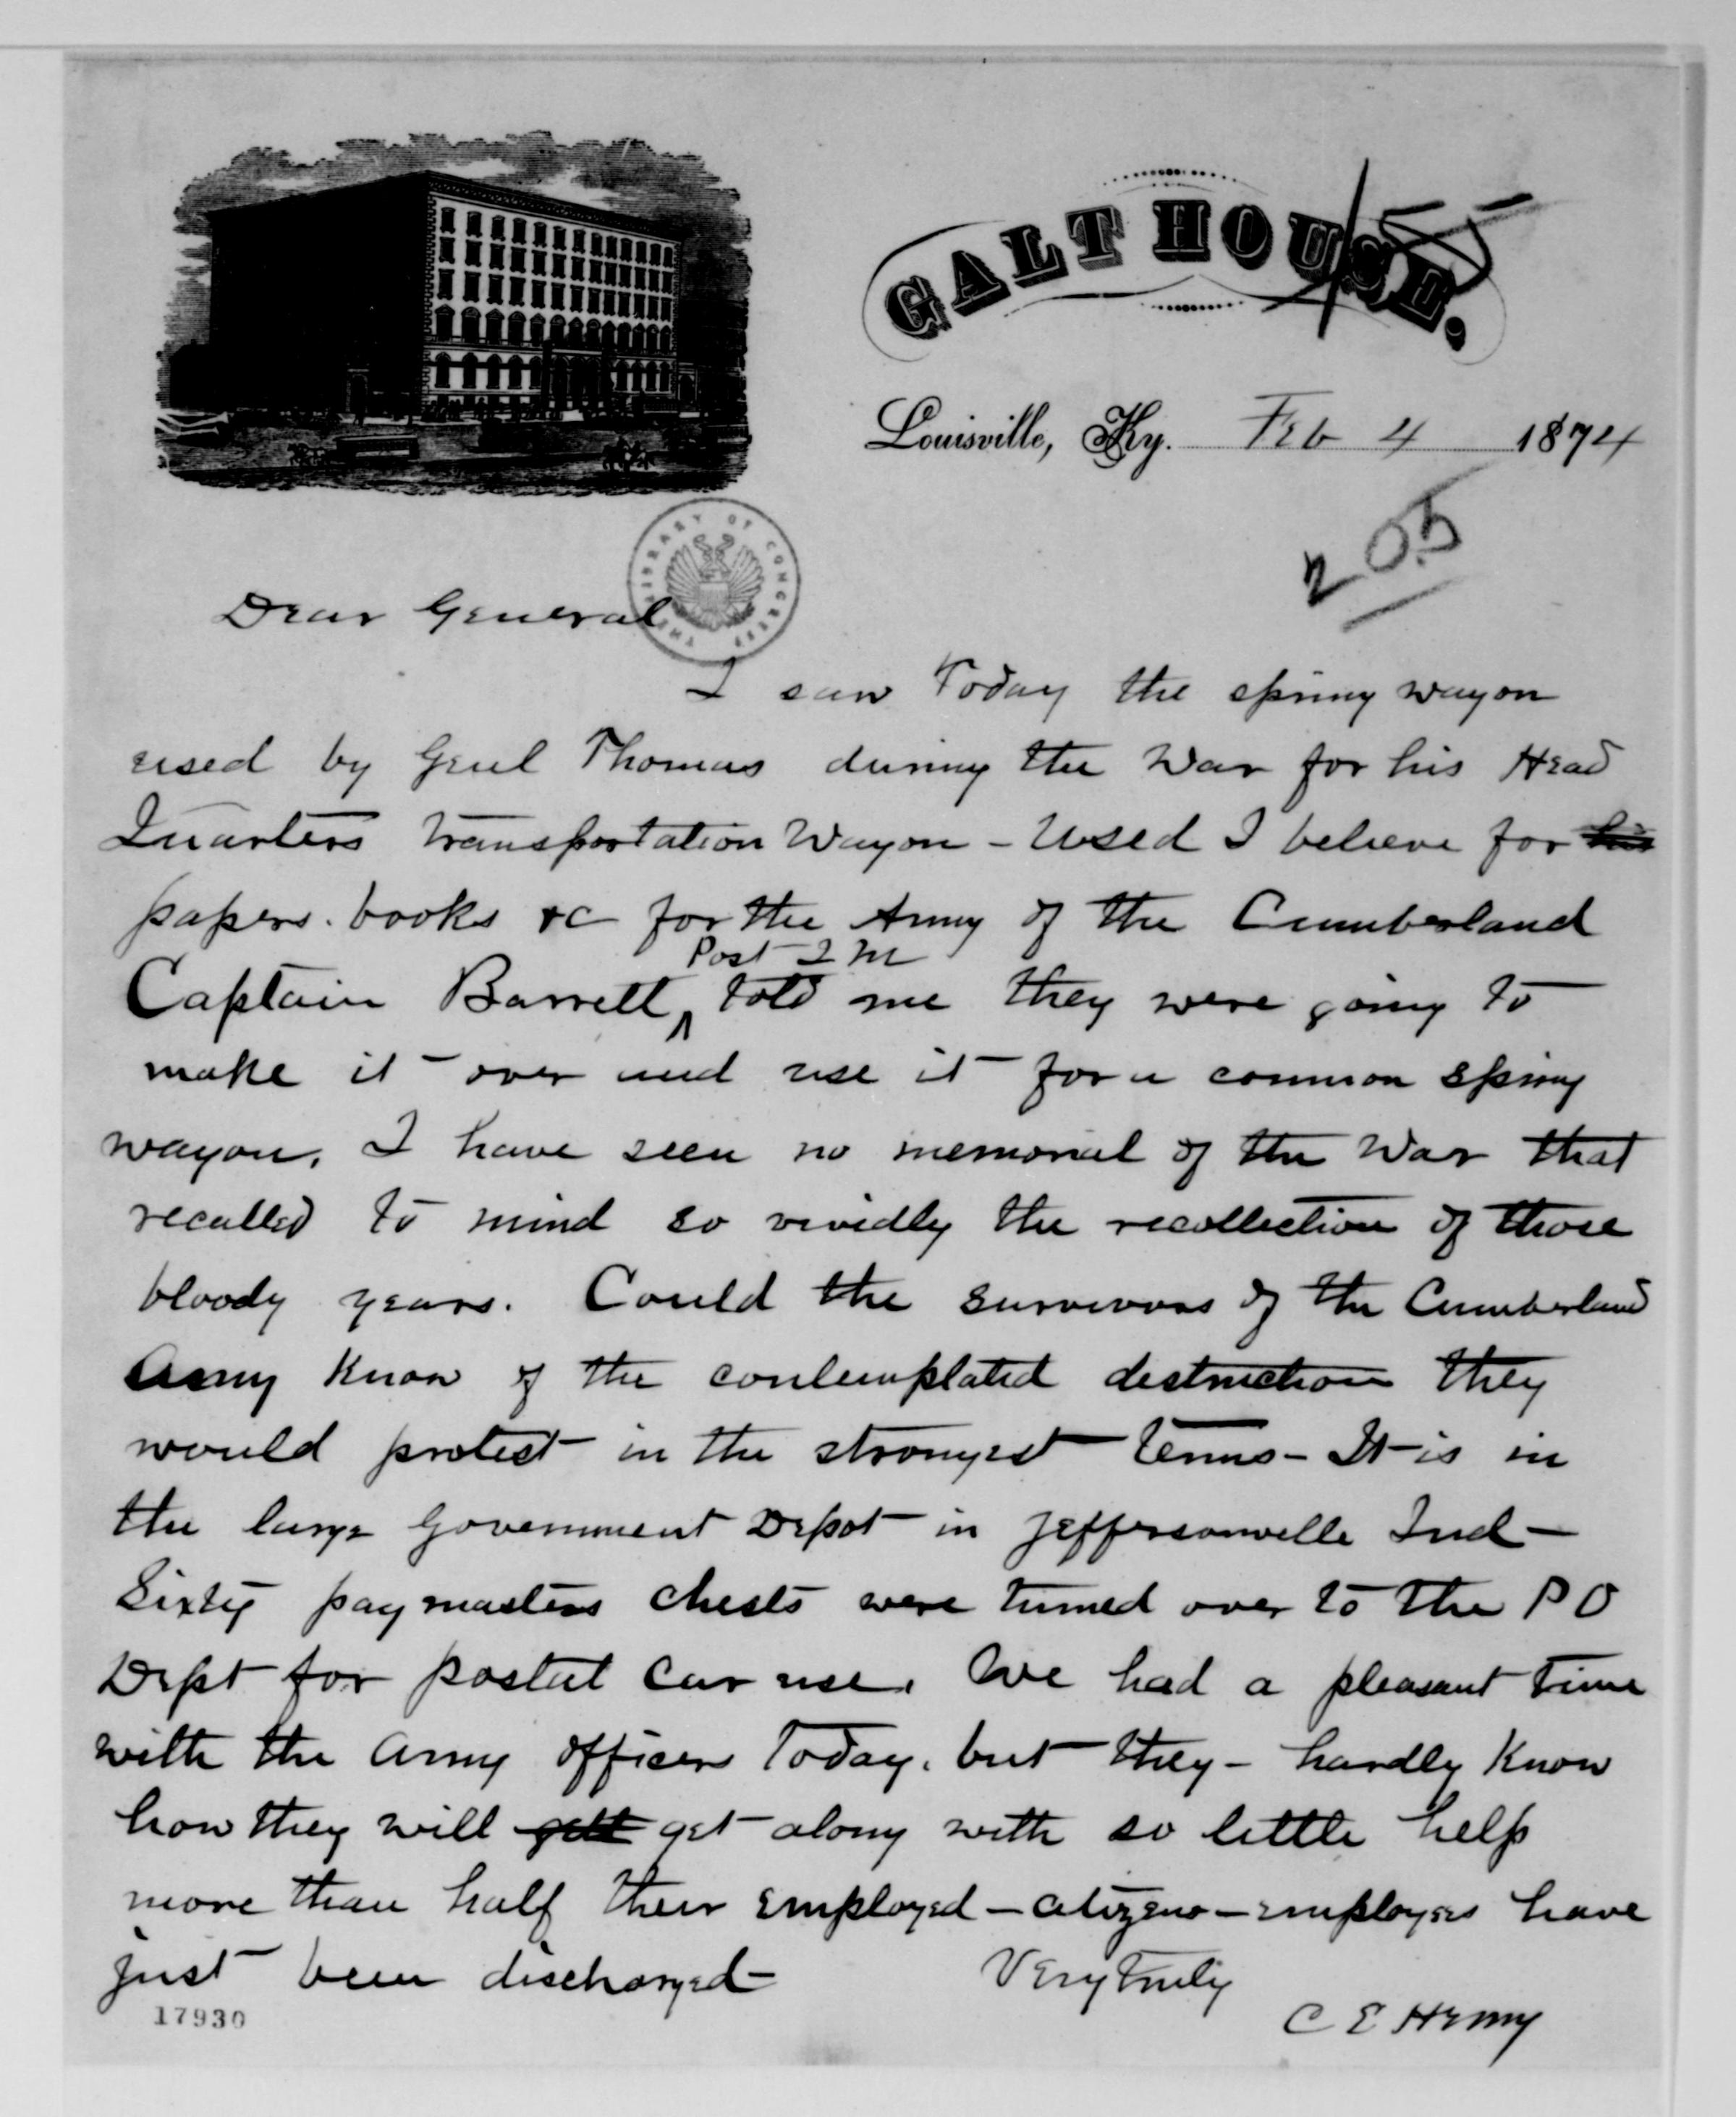 GALT HOUSE.
Louisville, Ky. Feb 4 1874
205
THE LIBRARY OF CONGRESS
Dear General
I saw Today the spring wagon
used by Genl Thomas during the War for his Head
Quarters transportation Wagon - Used I believe for his
papers. books &c for the Army of the Cumberland
Post Q M
Captain Barrett ^ told me they were going to
make it over and use it for a common spring
wagon. I have seen no memorial of the War that
recalled to mind so vividly the recollection of those
bloody years. Could the survivors of the Cumberland
Army Know of the contemplated destruction they
would protest in the strongest terms - It is in
the large Government Depot in Jeffersonville Ind -
Sixty paymasters chests were turned over to the P O
Dept for postal car use. We had a pleasant time
with the Army officers Today. but they - hardly Know
how they will gett get along with so little help
more than half their employed - citizens - employes have
just been discharged -
Very truly
C E Henry
17930